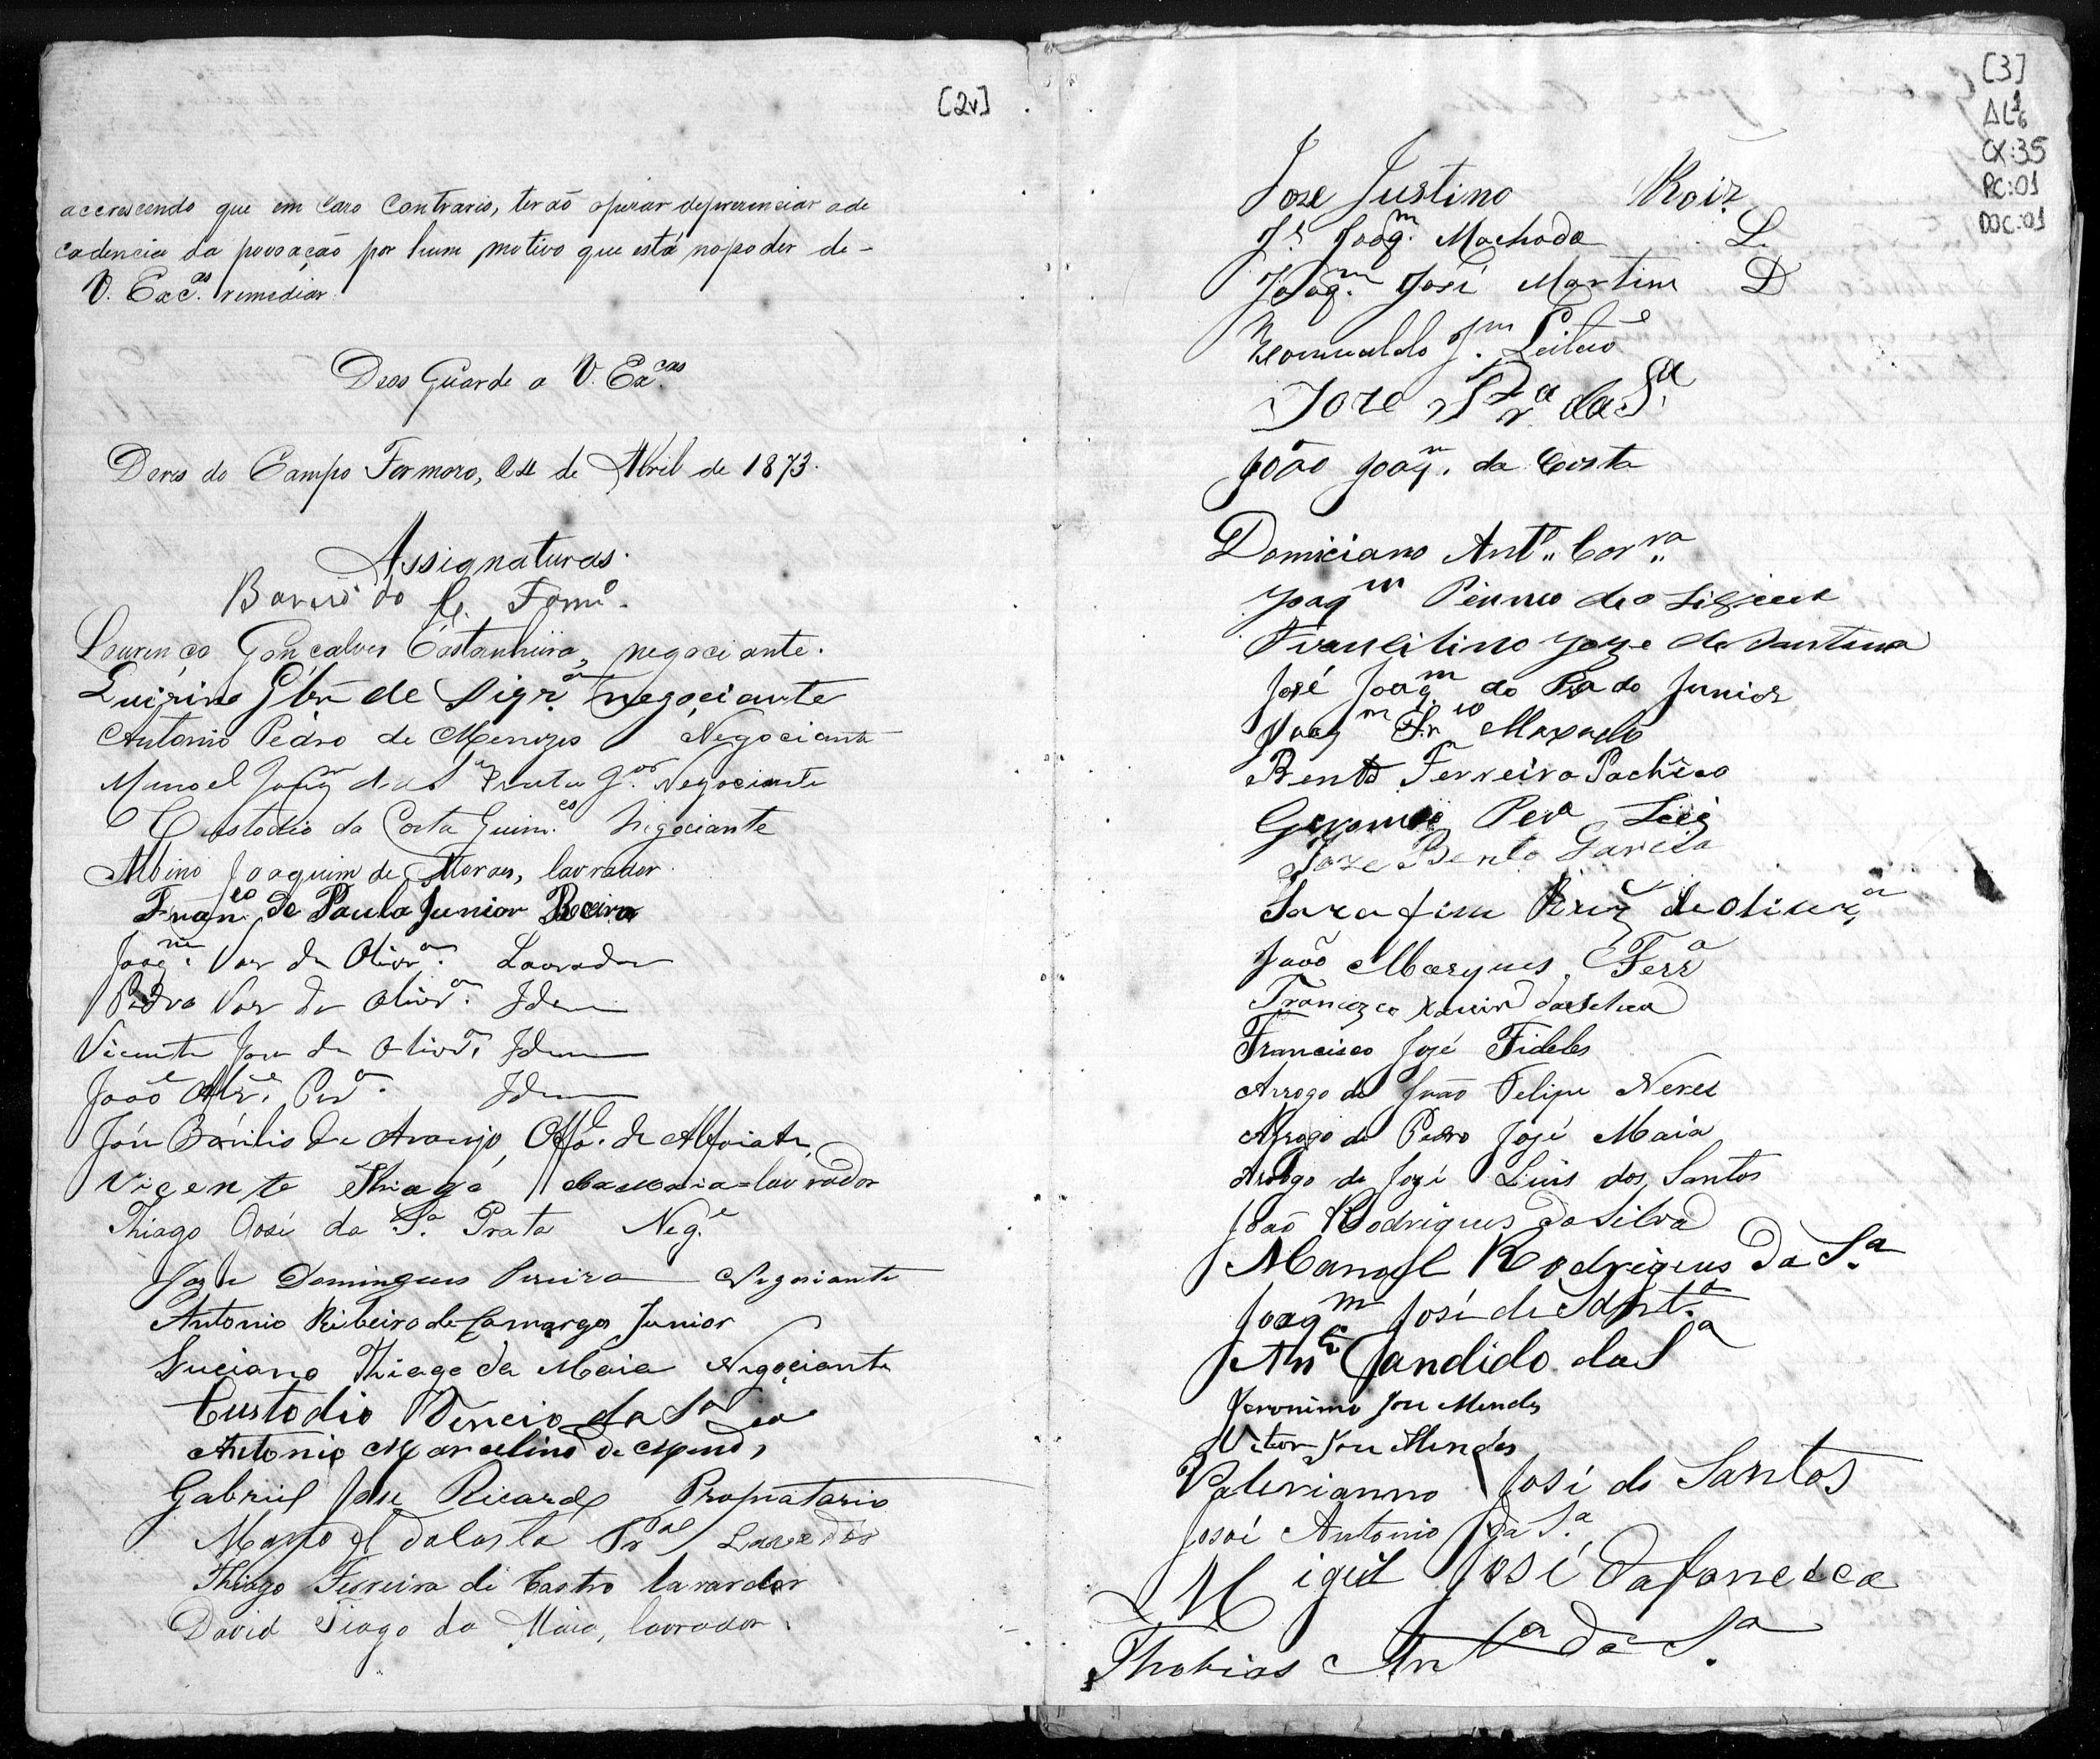 [2v]
accrescendo que em caso contrario, terão o pezar de prezenciar a de
cadencia da povoação por hum motivo que está no poder de
V. Exc.as remediar.
Deos Guarde a V. Ex.cas
Dores do Campo Formozo, 24 de Abril de 1873.
Assignaturas.
Barão do C. Formo.
Lourenço Gonçalves Castanheira, negociante.
Quirino de negociante
Antonio Pedro de Menezes Negociante
Manoel Joaqm da Sa Prata Negociante
Custodio da Costa Guim.es Negociante
Albino Joaquim de Moraes, lavrador.
Franco de Paula Junior
Joaqm. Vas de Olivra. Lavrador
Pedro Vas de Olivra. Idem
Vicente Jose de Olivra. Idem
João Alz. Pra. Idem
José Bazilio de Araujo, Offal. de Alfaiate,
Vicente Thiago da maia = lavrador
Thiago José da Sa. Prata Nege.
Joze Domingues Pereira Negociante
Antonio Ribeiro de Camargos Junior
Luciano Thiago da Maia Negociante
Custodio da Sa
Antonio Marcelino de
Gabriel Jose Ricardo Propriatario
Manoel da Costa Lavrador
Thiago Ferreira de Castro lavarador
David Tiago da Maia, lavrador.
[3]
AL6
CX:35
PC:01
DOC:01
Joze Justino Roiz
Je. Joaqm. Machado L.
Joaqm. José Martins D
Romualdo Jm. Leitão
Joze da Sa.
João Joaqm. da Costa
Domiciano Anto. Corra.
Joaqm
Francilino Joze de Santana
José Joaqm do Prado Junior
Joaqm Frco Maxado
Bento Ferreira Pachêco
Gerome Pera
Joze Bento Garcia
Sarafim de oliura
João Marques Ferra
Francizco Xavier da Silva
Francisco José Fideles
Arrogo de João Felipe Neves
Arrogo de Pedro José Maia
Arrogo de José Luis dos Santos
João Rodrigues da Silva
Manoel Rodrigues da Sa.
Joaqm José de Santa.
Anto Candido da Sa
Jeronimo Jose Mendes
Vitor Jose Mendes
Valerianno José do Santos
Josoé Antonio da Sa.
Miguel José da fonceca
Thobias Anto da Sa.